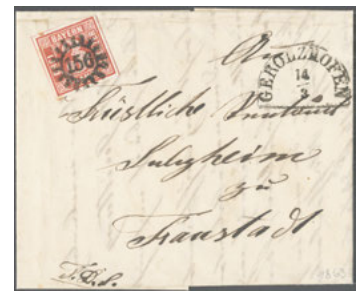 BAYERN
156
An
GEROLZHOFEN
14
3
Fürstliche
Sulzheim
zu
Traustadt